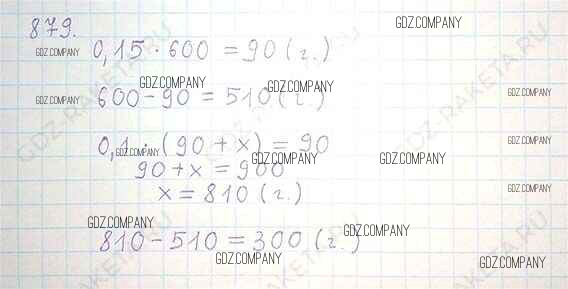 879.
GDZ.COMPANY
GDZ.COMPANY
0,15 · 600 = 90 (г.)
GDZ.COMPANY
GDZ.COMPANY
GDZ.COMPANY
600 - 90 = 510 (г.)
GDZ.COMPANY
GDZ.COMPANY
0,1 · (90 + x) = 90
GDZ.COMPANY
GDZ.COMPANY
90 + x = 900
GDZ.COMPANY
GDZ.COMPANY
x = 810 (г.)
GDZ.COMPANY
GDZ.COMPANY
GDZ.COMPANY
810 - 510 = 300 (г.)
GDZ.COMPANY
GDZ.COMPANY
GDZ-RAKETA.RU
GDZ-RAKETA.RU
GDZ-RAKETA.RU